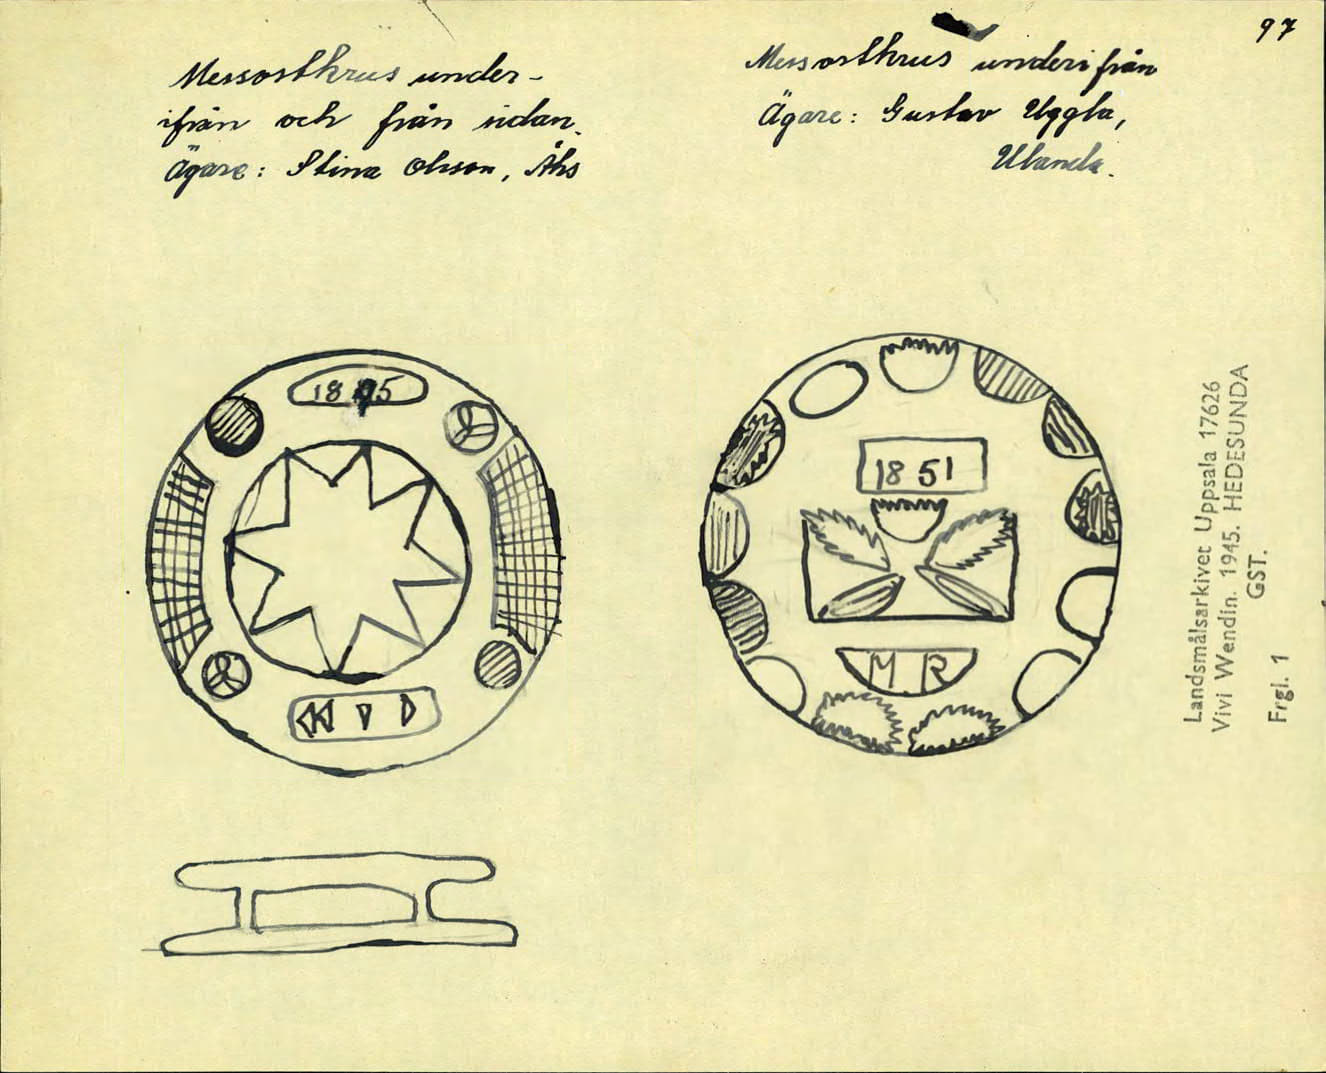 97
Messostkrus under-
ifrån och från sidan.
Ägare: Stina Olsson, Ålis
Messostkrus underifrån
Ägare: Gustav Uggla,
Ulanda.
18 5
1851
M R
Landsmålsarkivet Uppsala 17626
Vivi Wendin. 1945. HEDESUNDA
GST.
Frgl. 1